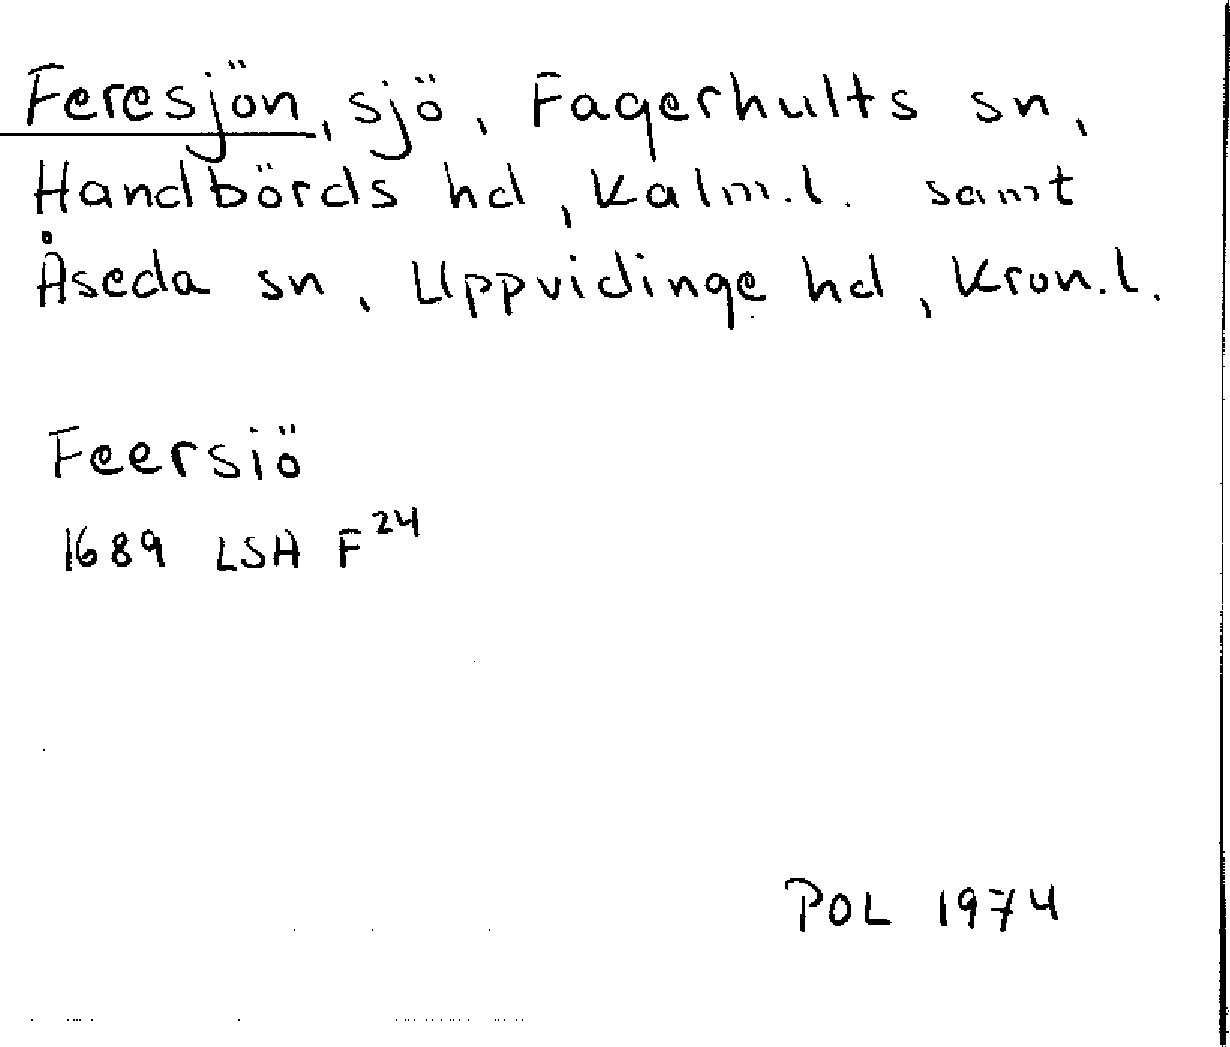 Feresjön, sjö, Fagerhults sn,
Handbörds hd, Kalm.l. samt
Åseda sn, Uppvidinge hd, Kron.l.
Feersiö
1689 LSA F24
POL 1974